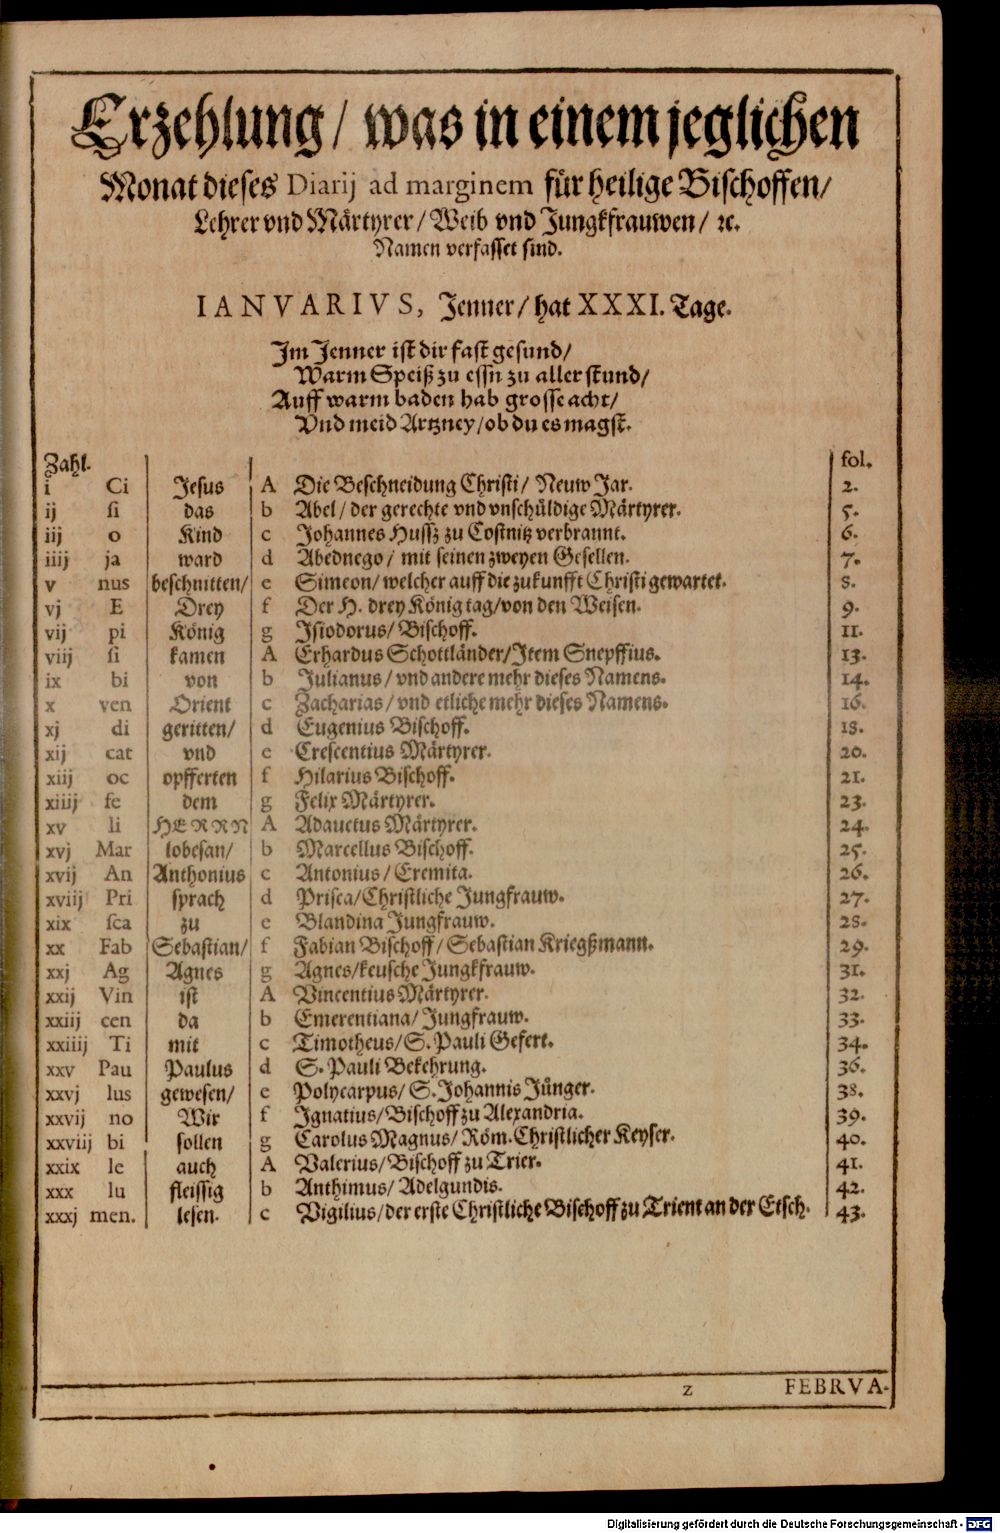 Erzehlung / was in einem jeglichen
Monat dieses Diarij ad marginem für heilige Bischoffen /
Lehrer vnd Märtyrer / Weib vnd Jungkfrauwen / ꝛc.
Namen verfasset sind.
IANVARIVS, Jenner / hat XXXI. Tage.
Im Jenner ist dir fast gesund /
Warm Speiß zu essn zu aller stund /
Auff warm baden hab grosse acht /
Vnd meid Artzney / ob du es magst.
Zahl. fol.
i Ci Jesus A Die Beschneidung Christi / Neuw Jar. 2.
ij si das b Abel / der gerechte vnd vnschüldige Märtyrer. 5.
iij o Kind c Johannes Hussz zu Costnitz verbrannt. 6.
iiij ja ward d Abednego / mit seinen zweyen Gesellen. 7.
v nus beschnitten / e Simeon / welcher auff die zukunfft Christi gewartet. 8.
vj E Drey f Der H. drey König tag / von den Weisen. 9.
vij pi König g Isiodorus / Bischoff. 11.
viij si kamen A Erhardus Schottländer / Item Snepffius. 13.
ix bi von b Julianus / vnd andere mehr dieses Namens. 14.
x ven Orient c Zacharias / vnd etliche mehr dieses Namens. 16.
xj di geritten / d Eugenius Bischoff. 18.
xij cat vnd e Crescentius Märtyrer. 20.
xiij oc opfferten f Hilarius Bischoff. 21.
xiiij fe dem g Felix Märtyrer. 23.
xv li HERRN A Adauctus Märtyrer. 24.
xvj Mar lobesan / b Marcellus Bischoff. 25.
xvij An Anthonius c Antonius / Eremita. 26.
xviij Pri sprach d Prisca / Christliche Jungfrauw. 27.
xix sca zu e Blandina Jungfrauw. 28.
xx Fab Sebastian / f Fabian Bischoff / Sebastian Kriegßmann. 29.
xxj Ag Agnes g Agnes / keusche Jungkfrauw. 31.
xxij Vin ist A Vincentius Märtyrer. 32.
xxiij cen da b Emerentiana / Jungfrauw. 33.
xxiiij Ti mit c Timotheus / S. Pauli Gefert. 34.
xxv Pau Paulus d S. Pauli Bekehrung. 36.
xxvj lus gewesen / e Polycarpus / S. Johannis Jünger. 38.
xxvij no Wir f Ignatius / Bischoff zu Alexandria. 39.
xxviij bi sollen g Carolus Magnus / Röm. Christlicher Keyser. 40.
xxix le auch A Valerius / Bischoff zu Trier. 41.
xxx lu fleissig b Anthimus / Adelgundis. 42.
xxxj men. lesen. c Vigilius / der erste Christliche Bischoff zu Trient an der Etsch. 43.
z FEBRVA-
Digitalisierung gefördert durch die Deutsche Forschungsgemeinschaft - DFG